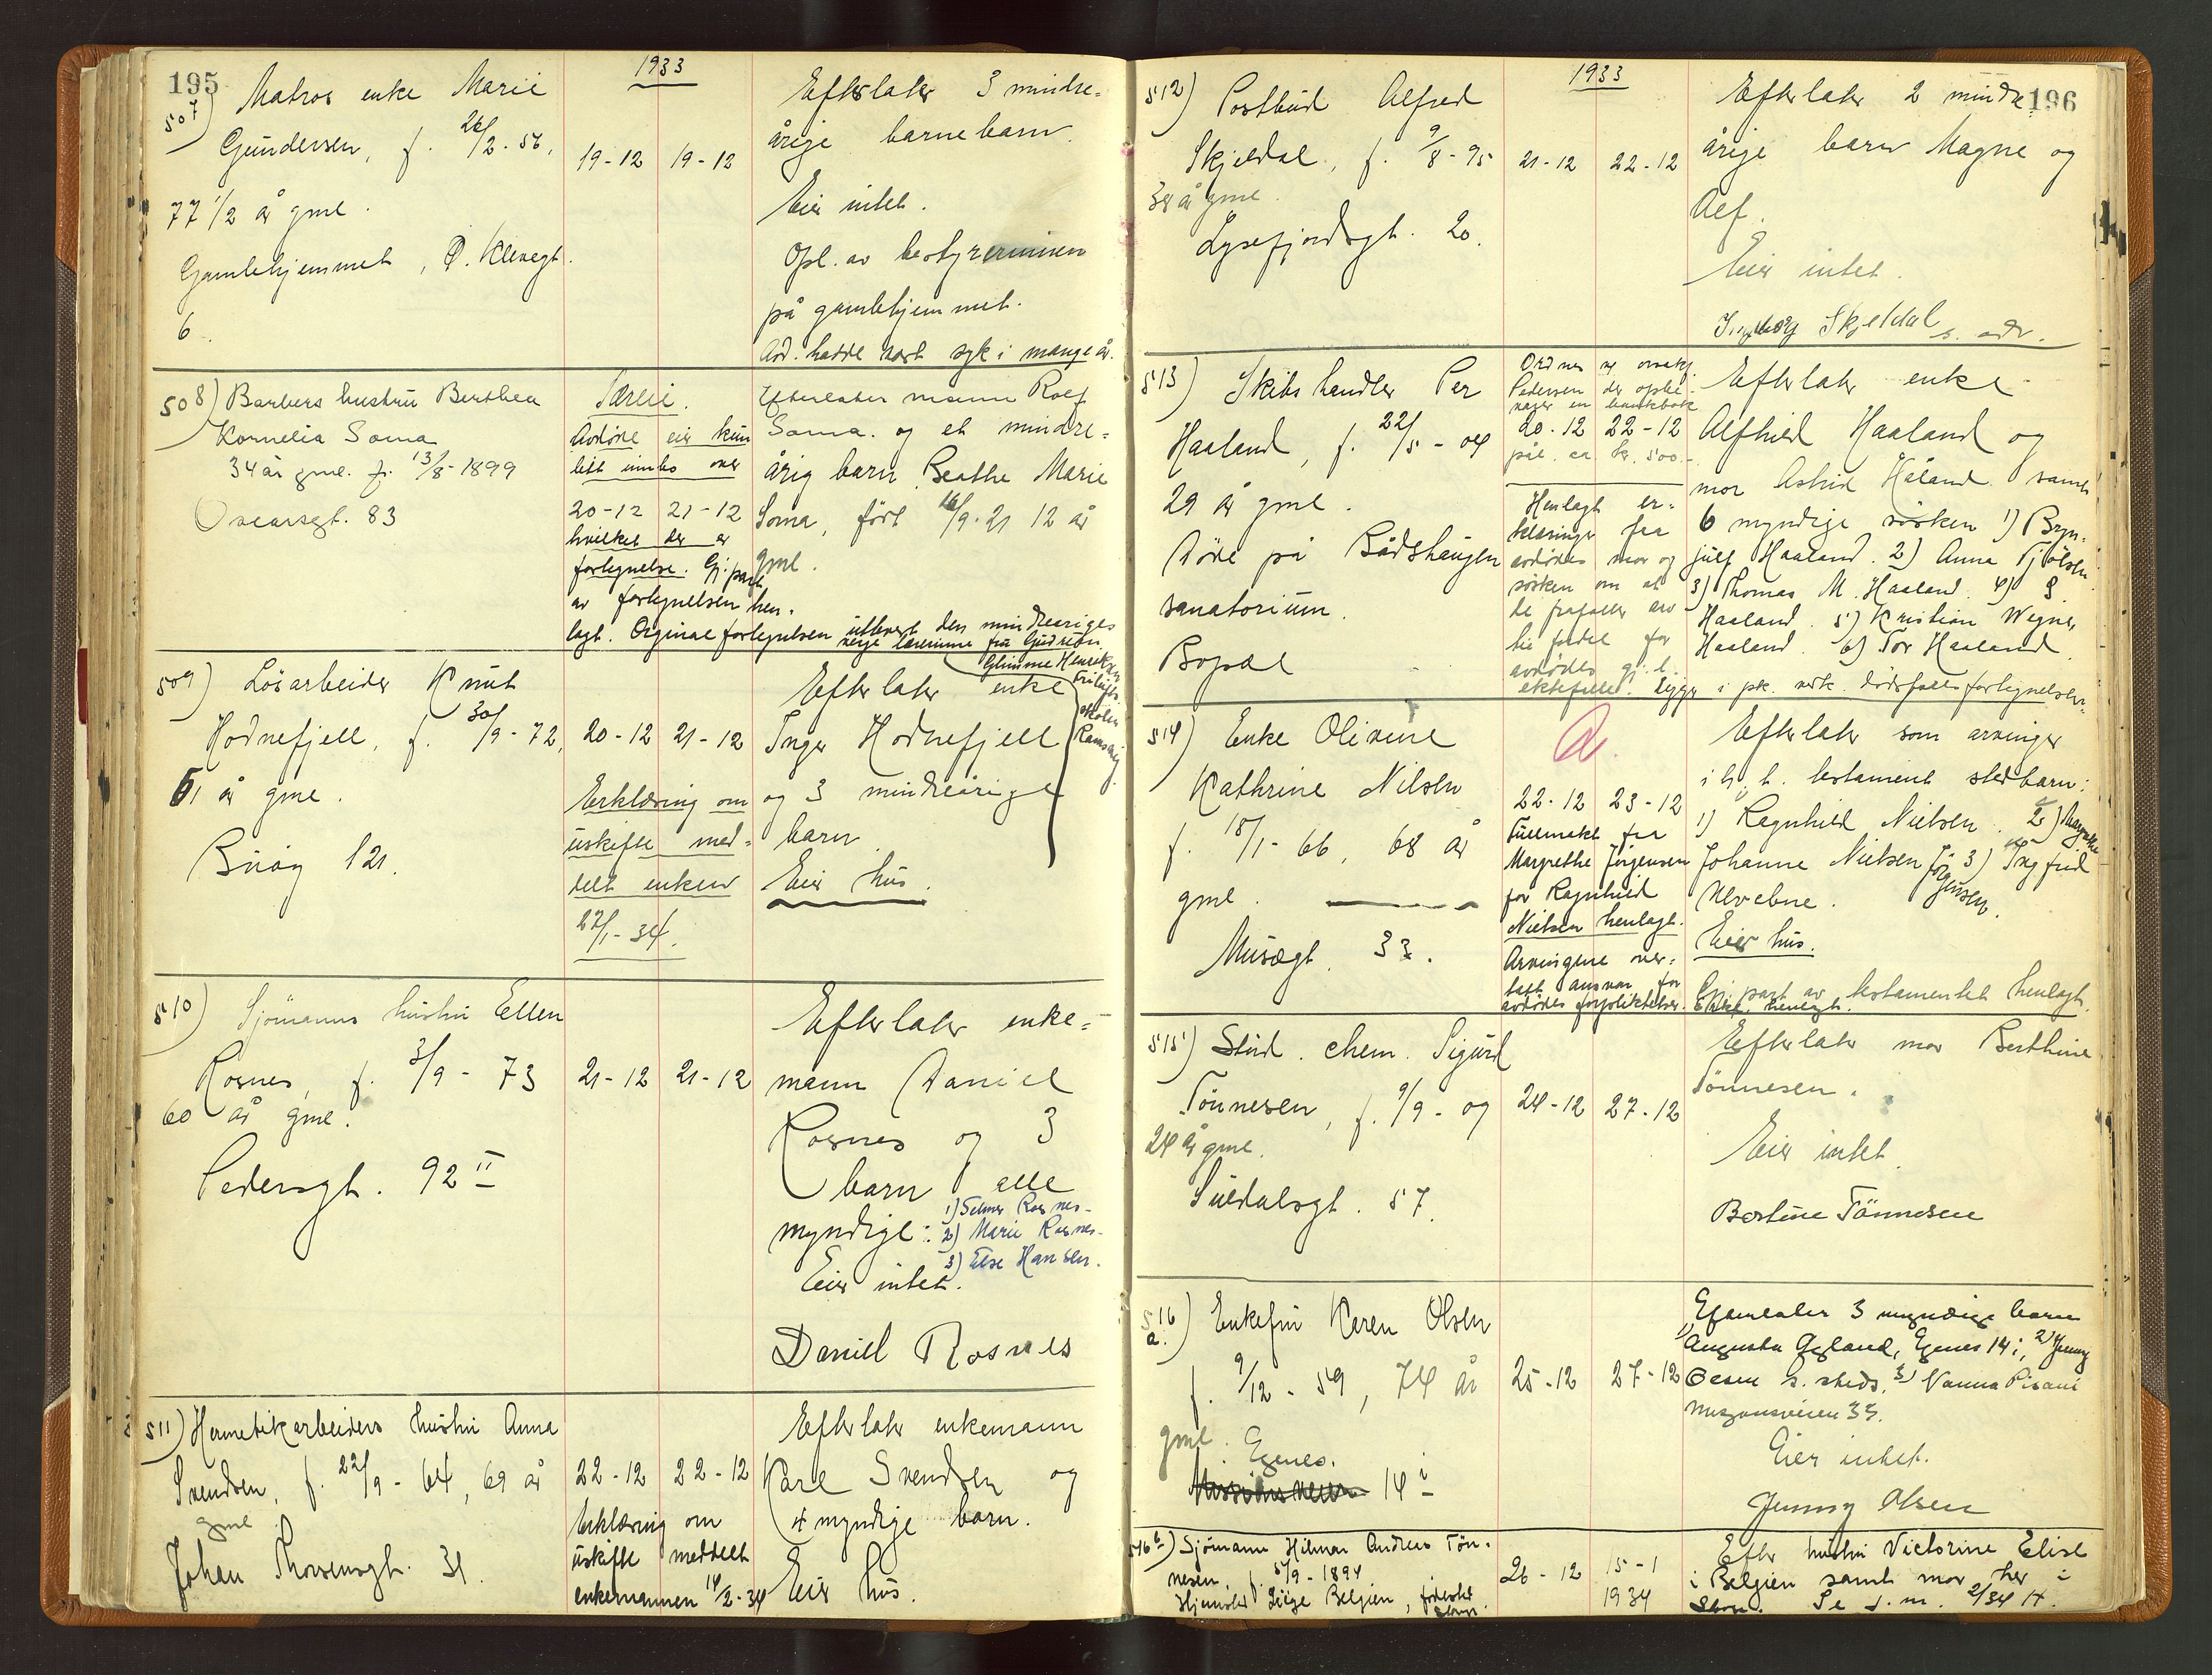 195
1933
507) Matros enke Marie
Gundersen, f. 26/2-56,
77 1/2 år gml.
Gamlehjemmet, Ø. Klevegt.
6.
19-12 19-12
Efterlater 3 mindre=
årige barnebarn.
Eier intet.
Opl. av bestyrerinnen
på gamlehjemmet.
Avd. hadde vært syk i mange år.
508) Barbers hustru Berthea
Kornelia Soma
34 år gml. f. 13/8-1899
Oscarsgt. 83
Særeie.
Avdöde eier kun
litt innbo over
20-12 21-12
hvilket der er
fortegnelse. Gj.part
av fortegnelsen hen-
lagt. Orginal fortegnelsen utlevert den mindreåriges
verge lærerinne fru Gudrun
Glimme Henriksen
Friluft-
skolen
Ramsvig.
Efterlater mann Rolf
Soma og et mindre=
årig barn Beathe Marie
Soma, født 16/9-21 12 år
gml.
509) Lösarbeider Knut
Hodnefjell, f. 30/9-72,
61 år gml.
Buöy 121.
20-12 21-12
Erklæring om
uskifte med=
delt enken
27/1-34.
Efterlater enke
Inger Hodnefjell
og 3 mindreårige
barn.
Eier hus.
510) Sjömanns hustru Ellen
Rosnes, f. 3/9-73
60 år gml.
Pedersgt. 92 II
21-12 21-12
Efterlater enke=
mann Daniel
Rosnes og 3
barn alle
myndige: 1) Selmer Rosnes-
2) Marie Rosnes-
3) Else Hansen.
Eier intet.
Daniel Rosnes
511) Hermetikarbeiders hustru Anna
Svendsen, f. 22/9-64, 69 år
gml
Johan Thorsensgt. 31.
22-12 22-12
Erklæring om
uskifte meddelt
enkemannen 14/2-34
Efterlater enkemann
Karl Svendsen og
4 myndige barn.
Eier hus.
196
1933
512) Postbud Alfred
Skjeldal, f. 9/8-95
38 år gml.
Lysefjordsgt. 20.
21-12 22-12
Efterlater 2 mindre
årige barn Magne og
Alf.
Eier intet.
Ingeborg Skjeldal s. adr.
513) Skibshandler Per
Haaland, f. 22/5-04
29 år gml.
Döde på Bådshaugen
sanatorium.
Bopæl
Ordnes av overrf.
Pedersen der opbe-
varer en bankbok
20-12 22-12
pål. ca kr. 500.-
Henlagt er-
klæringer fra
avdödes mor og
sösken om at
de frafaller arv
til fordel for
avdödes gj.l.
ektefelle. Ligger i pk. vedk. dödsfallsfortegnelsen.
Efterlater enke
Alfhild Haaland og
mor Astrid Håland samt
6 myndige sösken 1) Bryn-
julf Haaland. 2) Anna Tjölsen
3) Thomas M. Haaland. 4) S.
Haaland. 5) Kristian Wegner
Haaland. 6) Tor Haaland
514) Enke Olivine
Kathrine Nilsen
f. 18/1-66, 68 år
gml.
Musægt. 33.
22-12 23-12
Fullmakt fra
Margrethe Jørgensen
for Ragnhild
Nielsen henlagt.
Arvingene over-
tatt ansvar for
avdödes forpliktelser.
Efterlater som arvinger
i h. t. testament stedbarn:
1) Ragnhild Nielsen. 2) Margrethe
Johanne Nielsen Jörgensen. 3) Ingfrid
Ulvebne.
Eier hus.
Gj. part av testamentet henlagt.
515) Stud. chem. Sigurd
Tönnesen, f. 9/9-09
24 år gml.
Suldalsgt. 57.
24-12 27-12
Efterlater mor Berthine
Tönnesen.
Eier intet.
Bertine Tönnesen
516 a.) Enkefru Karen Olsen
f. 9/12-59, 74 år
gml. Egenes.
14 i
25-12 27-12
Efterlater 3 myndige barn
1) Augusta Øgland, Egenes 14 i, 2) Jenny
Olsen s. steds. 3) Nanna Pisani
Misjonsveien 33.
Eier intet.
Jenny Olsen
516 b) Sjömann Hilmar Andreas Tön-
nesen, f. 5/9-1894
Hjemsted Liège Belgien, födested
Stvgr.
26-12 15-1
1934
Efterl. hustru Victorine Elise
i Belgien samt mor her i
Stvgr. Se j.nr. 2/34 H.